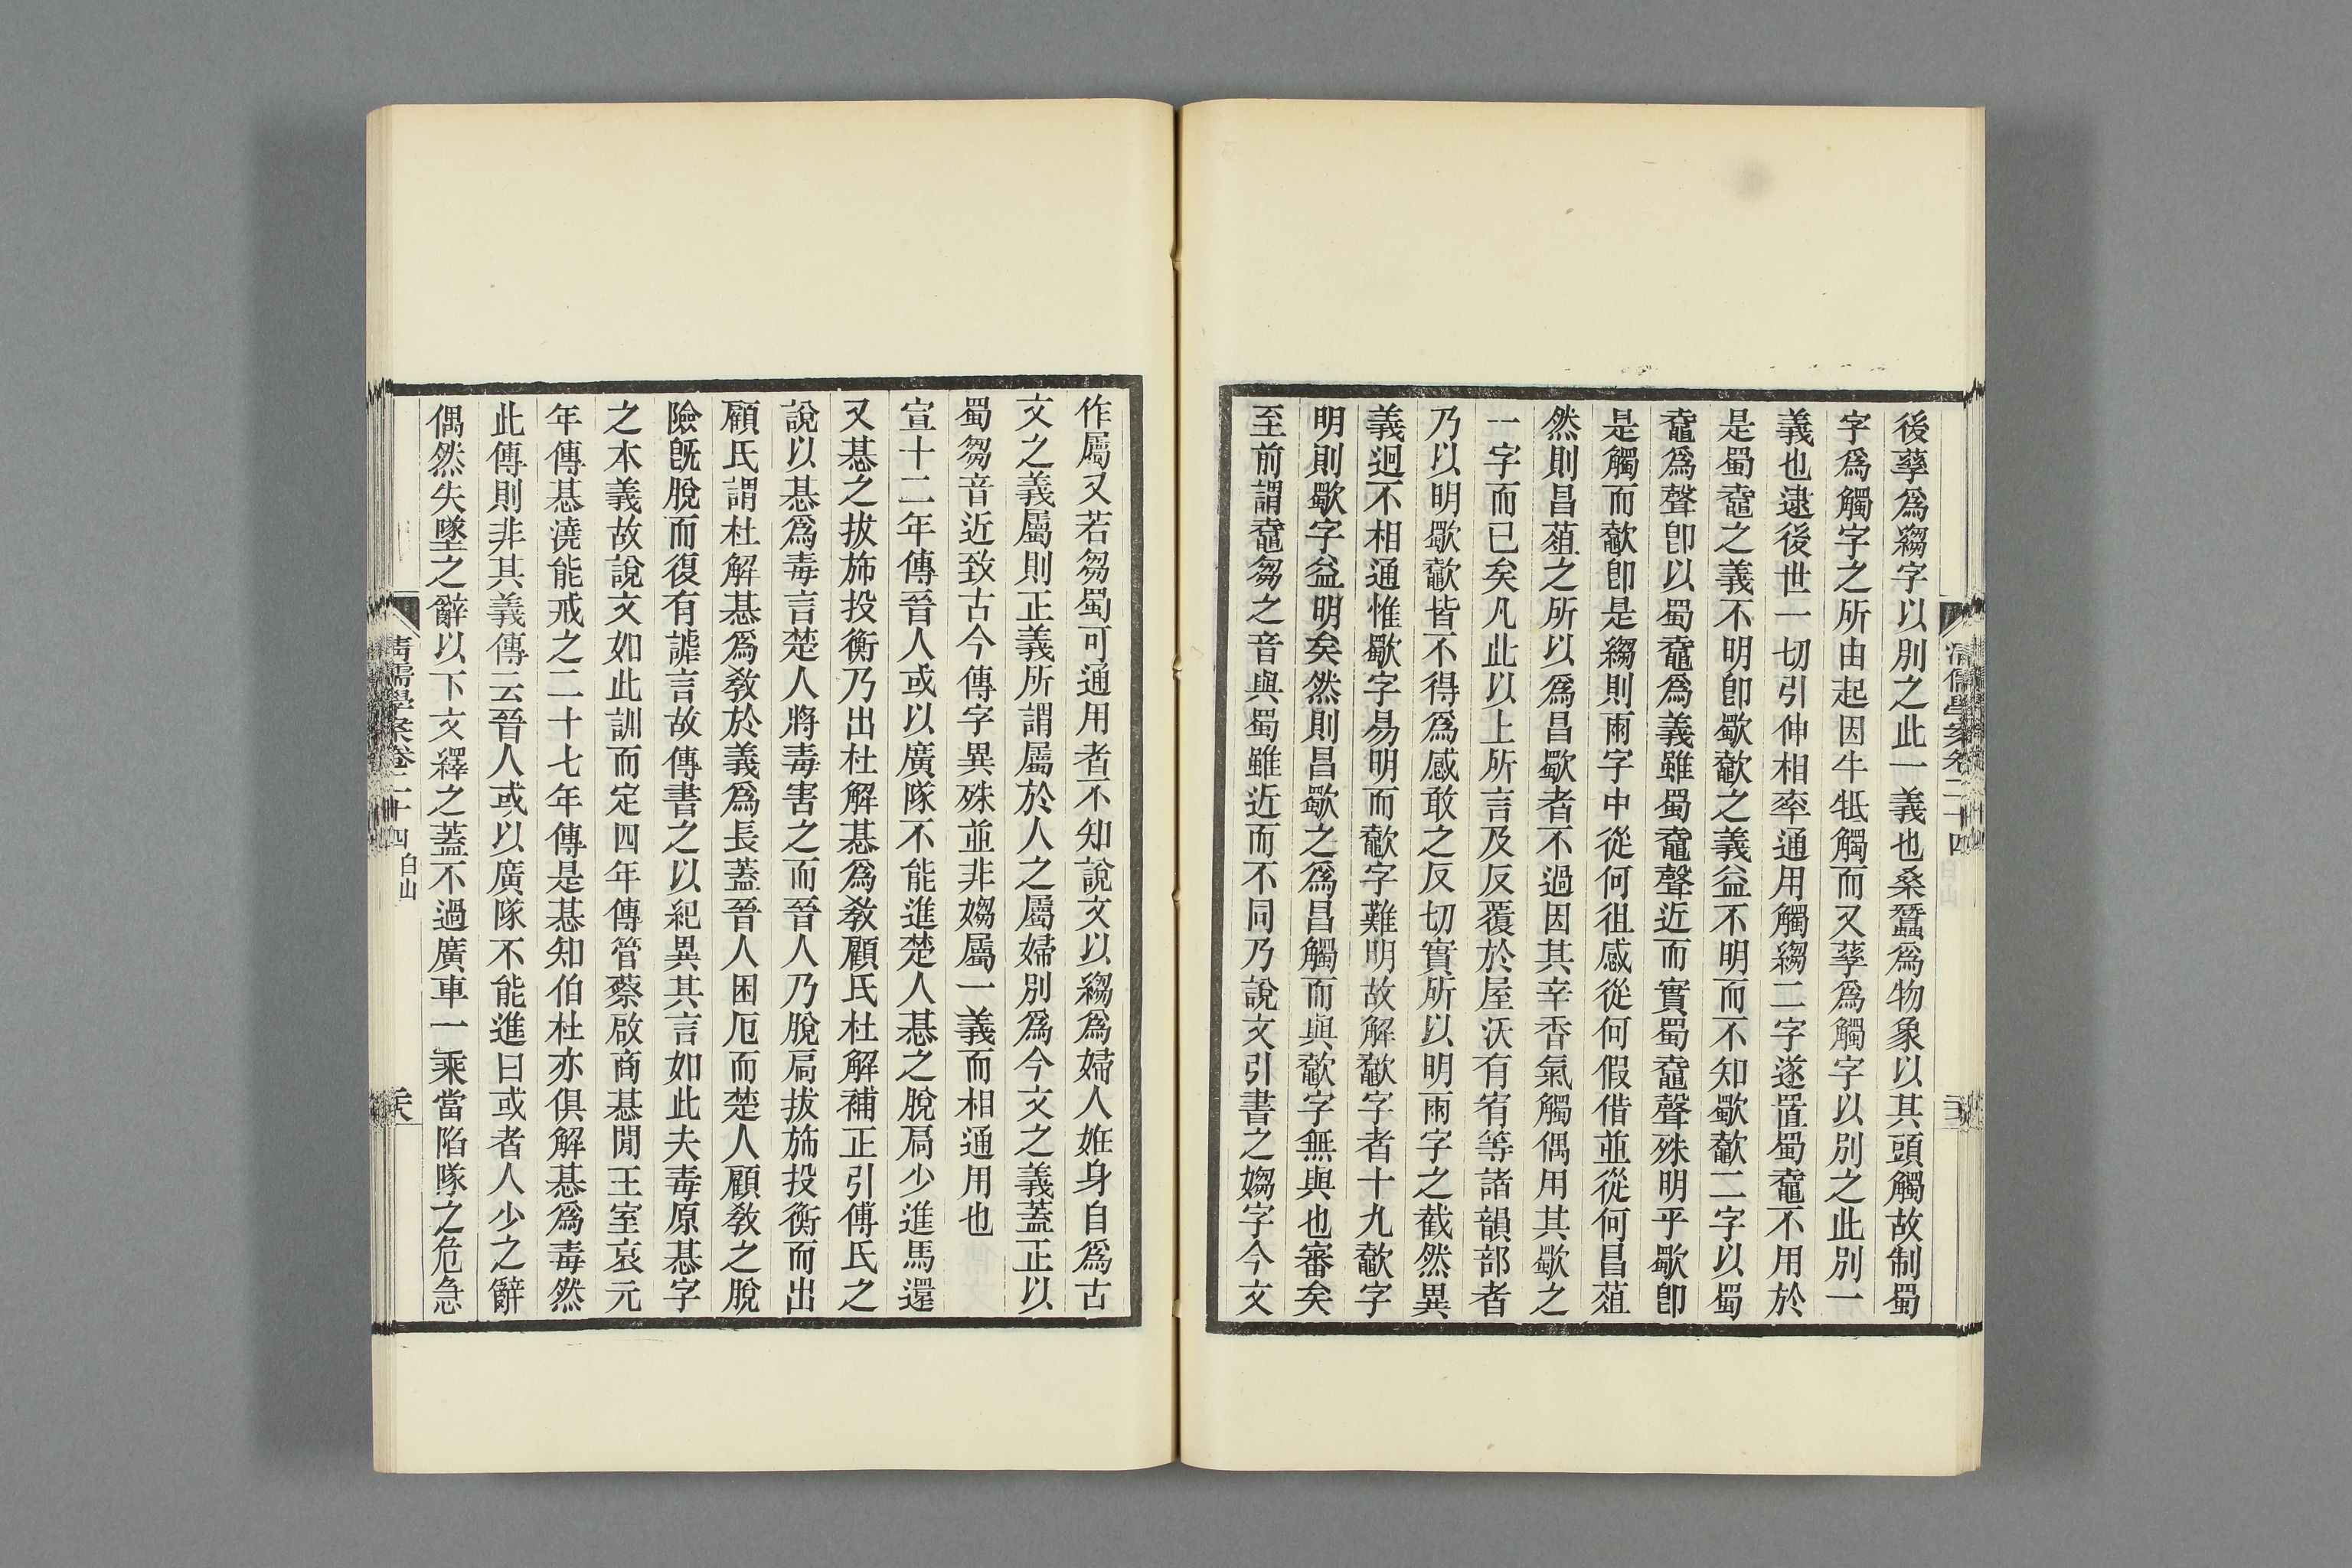 後孳爲縐字以別之此一義也桑蠶爲物象以其頭觸故制蜀
字爲觸字之所由起因牛牴觸而又孳爲觸字以別之此別一
義也逮後世一切引伸相率通用觸縐二字遂置蜀䵶不用於
是蜀䵶之義不明卽歜歜之義益不明而不知歜歜二字以蜀
䵶爲聲卽以蜀䵶爲義雖蜀䵶聲近而實蜀䵶聲殊明乎歜卽
是觸而歜卽是縐則兩字中從何徂感從何假借並從何昌葅
然則昌葅之所以爲昌歜者不過因其辛香氣觸偶用其歜之
一字而已矣凡此以上所言及反覆於屋沃有宥等諸韻部者
乃以明歜歜皆不得爲感敢之反切實所以明兩字之截然異
義迥不相通惟歜字易明而歜字難明故解歜字者十九歜字
明則歜字益明矣然則昌歜之爲昌觸而與歜字無與也審矣
至前謂䵶芻之音與蜀雖近而不同乃說文引書之媰字今文
作屬又若芻蜀可通用者不知說文以縐爲婦人妊身自爲古
文之義屬則正義所謂屬於人之屬婦別爲今文之義蓋正以
蜀芻音近致古今傳字異殊並非媰屬一義而相通用也
宣十二年傳晉人或以廣隊不能進楚人惎之脫扃少進馬還
又惎之拔旆投衡乃出杜解惎爲教顧氏杜解補正引傅氏之
說以惎爲毒言楚人將毒害之而晉人乃脫扃拔旆投衡而出
顧氏謂杜解惎爲教於義爲長蓋晉人困厄而楚人顧教之脫
險既脫而復有謔言故傳書之以紀異其言如此夫毒原惎字
之本義故說文如此訓而定四年傳管蔡啟商惎閒王室哀元
年傳惎澆能戒之二十七年傳是惎知伯杜亦俱解惎爲毒然
此傳則非其義傳云晉人或以廣隊不能進曰或者人少之辭
偶然失墜之辭以下文繹之蓋不過廣車一乘當陷隊之危急
清儒學案卷二十四
白山